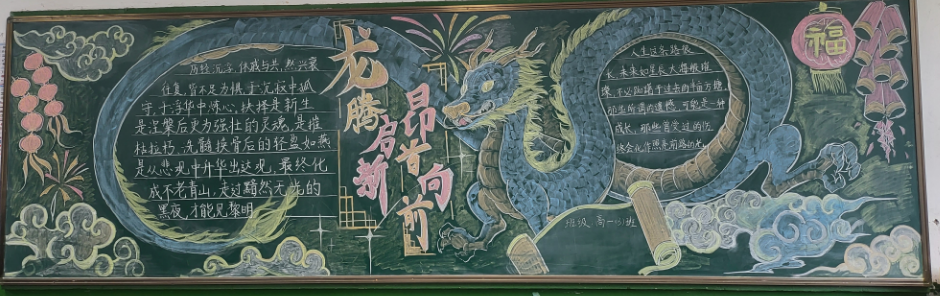 历经沉浮,休戚与共,然兴衰
往复,皆不足为惧,于无
守,于浮华中炼心,抉择是新生
是涅槃后更为强壮的灵魂,是摧
枯拉朽、洗髓换骨后的轻盈如燕
是从悲观中升华出达观,最终化
成不老青山,走过黯然无光的
黑夜,才能见黎明
龙腾启新
昂首向前
人生这条路很
长,未来如星辰大海般璀
璨,不必踟蹰于过去的半亩方塘
那些所谓的遗憾,可能是一种
成长,那些曾受过的伤
终会化作照亮前路的光
福
班级 高一 班